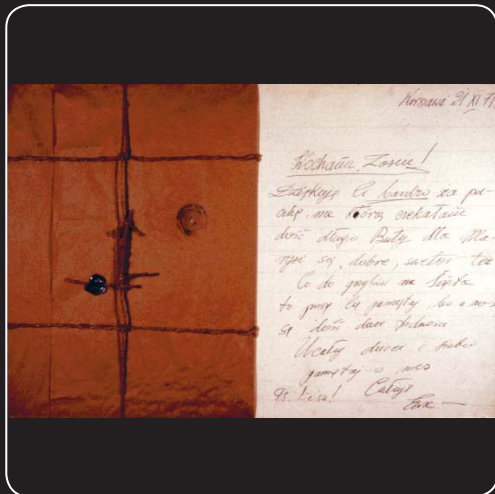 Warszawa 21 XI 71
Kochana Zosiu!
Dziękuję Ci bardzo za pa-
czkę, na którą czekałam
dość długo Buty dla Ma-
rysi są dobre, sweter też
Co do grzybów na Święta
to proszę Cię pamiętaj bo u nas
są dość
Ucałuj dzieci i siebie
pamiętaj o nas
Ps. Całuję
Ewa